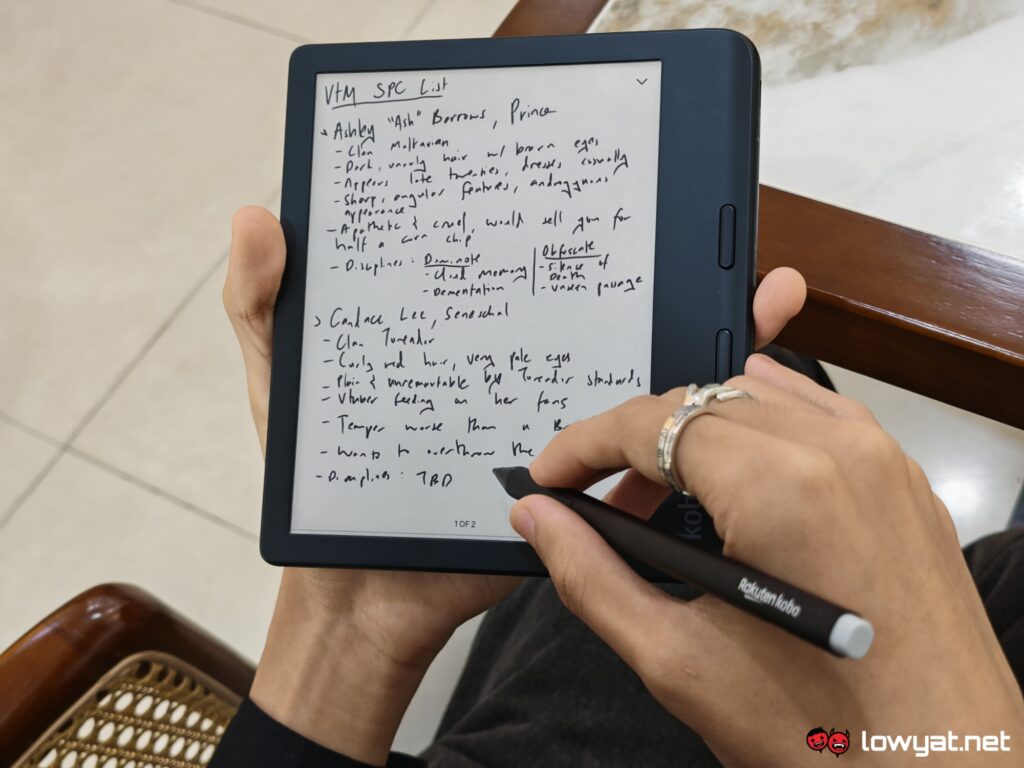 VtM SPC List
> Ashley "Ash" Borrows, Prince
- Clan Malkavian
- Dark, unruly hair w/ brown eyes
- Appears late twenties, dresses casually
- Sharp, angular features, androgynous
appearance
- Apathetic & cruel, would sell you for
half a corn chip
- Disciplines: Dominate
- Cloud memory
- Dementation
Obfuscate
- Silence of
Death
- Unseen passage
> Candace Lee, Seneschal
- Clan Toreador
- Curly red hair, very pale eyes
- Plain & unremarkable by Toreador standards
- Vtuber feeding on her fans
- Temper worse than a
- Wants to overthrow the
- Disciplines: TBD
1 OF 2
kobo
Rakuten kobo
lowyat.net